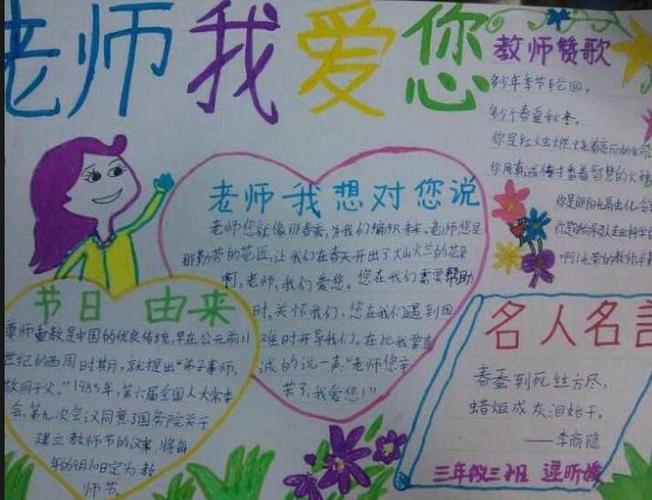 老师我爱您
教师赞歌
多少年季节轮回,
多少个春夏秋冬,
你是红烛燃烧着亮丽的生命
你用真诚传播着智慧的火种
老师我想对您说
老师您就像那春蚕,为我们编织未来,老师您是
那勤劳的花匠,让我们在春天开出了火兰的花朵
啊,老师,我们爱您。您在我们需要帮助
时,关怀我们,您在我们遇到困
难时开导我们。在此我要真
诚的说一声:“老师您辛
苦了,我爱您!”
节日由来
尊师重教是中国的优良传统,早在公元前11
世纪的西周时期,就提出“弟子事师,
敬同于父。”1985年,第六届全国人大常委
会第九次会议同意了国务院关于
建立教师节的议案,将每
年的9月10日定为教
师节。
名人名言
春蚕到死丝方尽,
蜡炬成灰泪始干。
——李商隐
三年级三班